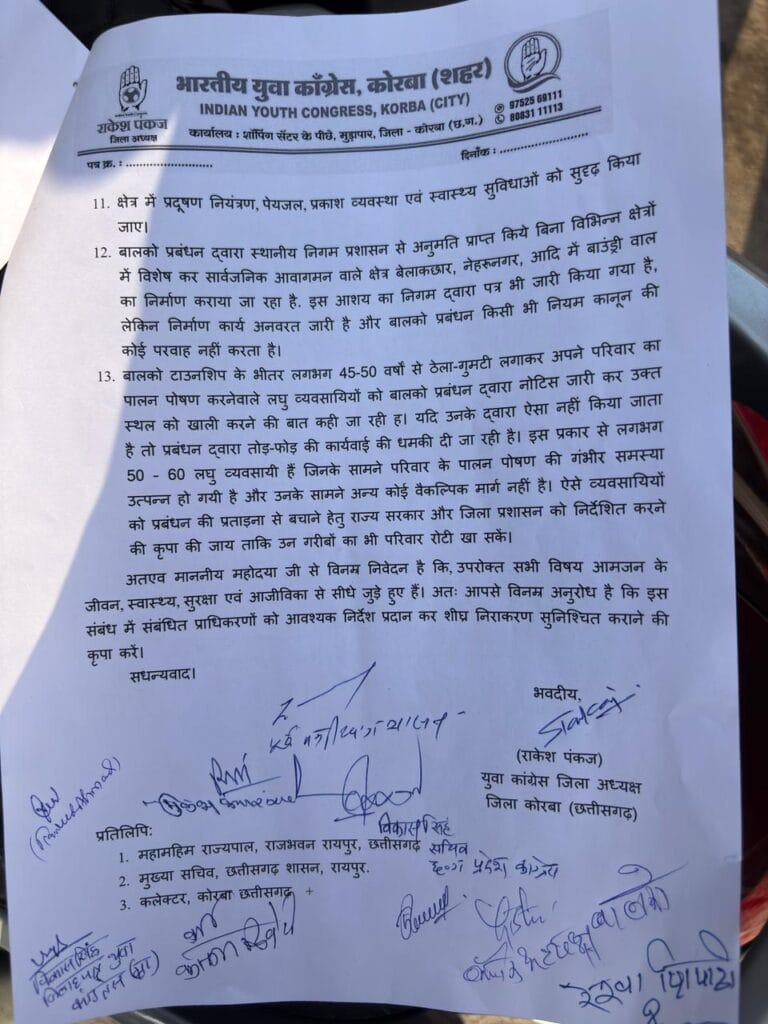 भारतीय युवा काँग्रेस, कोरबा (शहर)
INDIAN YOUTH CONGRESS, KORBA (CITY)
राकेश पंकज
जिला अध्यक्ष
97525 69111
80831 11113
कार्यालय : शॉपिंग सेंटर के पीछे, मुड़ापार, जिला - कोरबा (छ.ग.)
पत्र क्र. : ........................
दिनाँक : ........................
11. क्षेत्र में प्रदूषण नियंत्रण, पेयजल, प्रकाश व्यवस्था एवं स्वास्थ्य सुविधाओं को सुदृढ़ किया
जाए।
12. बालको प्रबंधन द्वारा स्थानीय निगम प्रशासन से अनुमति प्राप्त किये बिना विभिन्न क्षेत्रों
में विशेष कर सार्वजनिक आवागमन वाले क्षेत्र बेलाकछार, नेहरुनगर, आदि में बाउंड्री वाल
का निर्माण कराया जा रहा है. इस आशय का निगम द्वारा पत्र भी जारी किया गया है,
लेकिन निर्माण कार्य अनवरत जारी है और बालको प्रबंधन किसी भी नियम कानून की
कोई परवाह नहीं करता है।
13. बालको टाउनशिप के भीतर लगभग 45-50 वर्षो से ठेला-गुमटी लगाकर अपने परिवार का
पालन पोषण करनेवाले लघु व्यवसायियों को बालको प्रबंधन द्वारा नोटिस जारी कर उक्त
स्थल को खाली करने की बात कही जा रही ह। यदि उनके द्वारा ऐसा नहीं किया जाता
है तो प्रबंधन द्वारा तोड़-फोड़ की कार्यवाई की धमकी दी जा रही है। इस प्रकार से लगभग
50 - 60 लघु व्यवसायी हैं जिनके सामने परिवार के पालन पोषण की गंभीर समस्या
उत्पन्न हो गयी है और उनके सामने अन्य कोई वैकल्पिक मार्ग नहीं है। ऐसे व्यवसायियों
को प्रबंधन की प्रताड़ना से बचाने हेतु राज्य सरकार और जिला प्रशासन को निर्देशित करने
की कृपा की जाय ताकि उन गरीबों का भी परिवार रोटी खा सकें।
अतएव माननीय महोदया जी से विनम्र निवेदन है कि, उपरोक्त सभी विषय आमजन के
जीवन, स्वास्थ्य, सुरक्षा एवं आजीविका से सीधे जुड़े हुए हैं। अतः आपसे विनम्र अनुरोध है कि इस
संबंध में संबंधित प्राधिकरणों को आवश्यक निर्देश प्रदान कर शीघ्र निराकरण सुनिश्चित कराने की
कृपा करें।
सधन्यवाद।
भवदीय,
(राकेश पंकज)
युवा कांग्रेस जिला अध्यक्ष
जिला कोरबा (छत्तीसगढ़)
विकास सिंह
सचिव
प्रदेश कांग्रेस
प्रतिलिपि:
1. महामहिम राज्यपाल, राजभवन रायपुर, छत्तीसगढ़
2. मुख्या सचिव, छत्तीसगढ़ शासन, रायपुर.
3. कलेक्टर, कोरबा छत्तीसगढ़